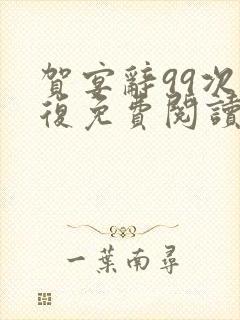 賀宴辭99次
復免費閱讀
一葉南尋